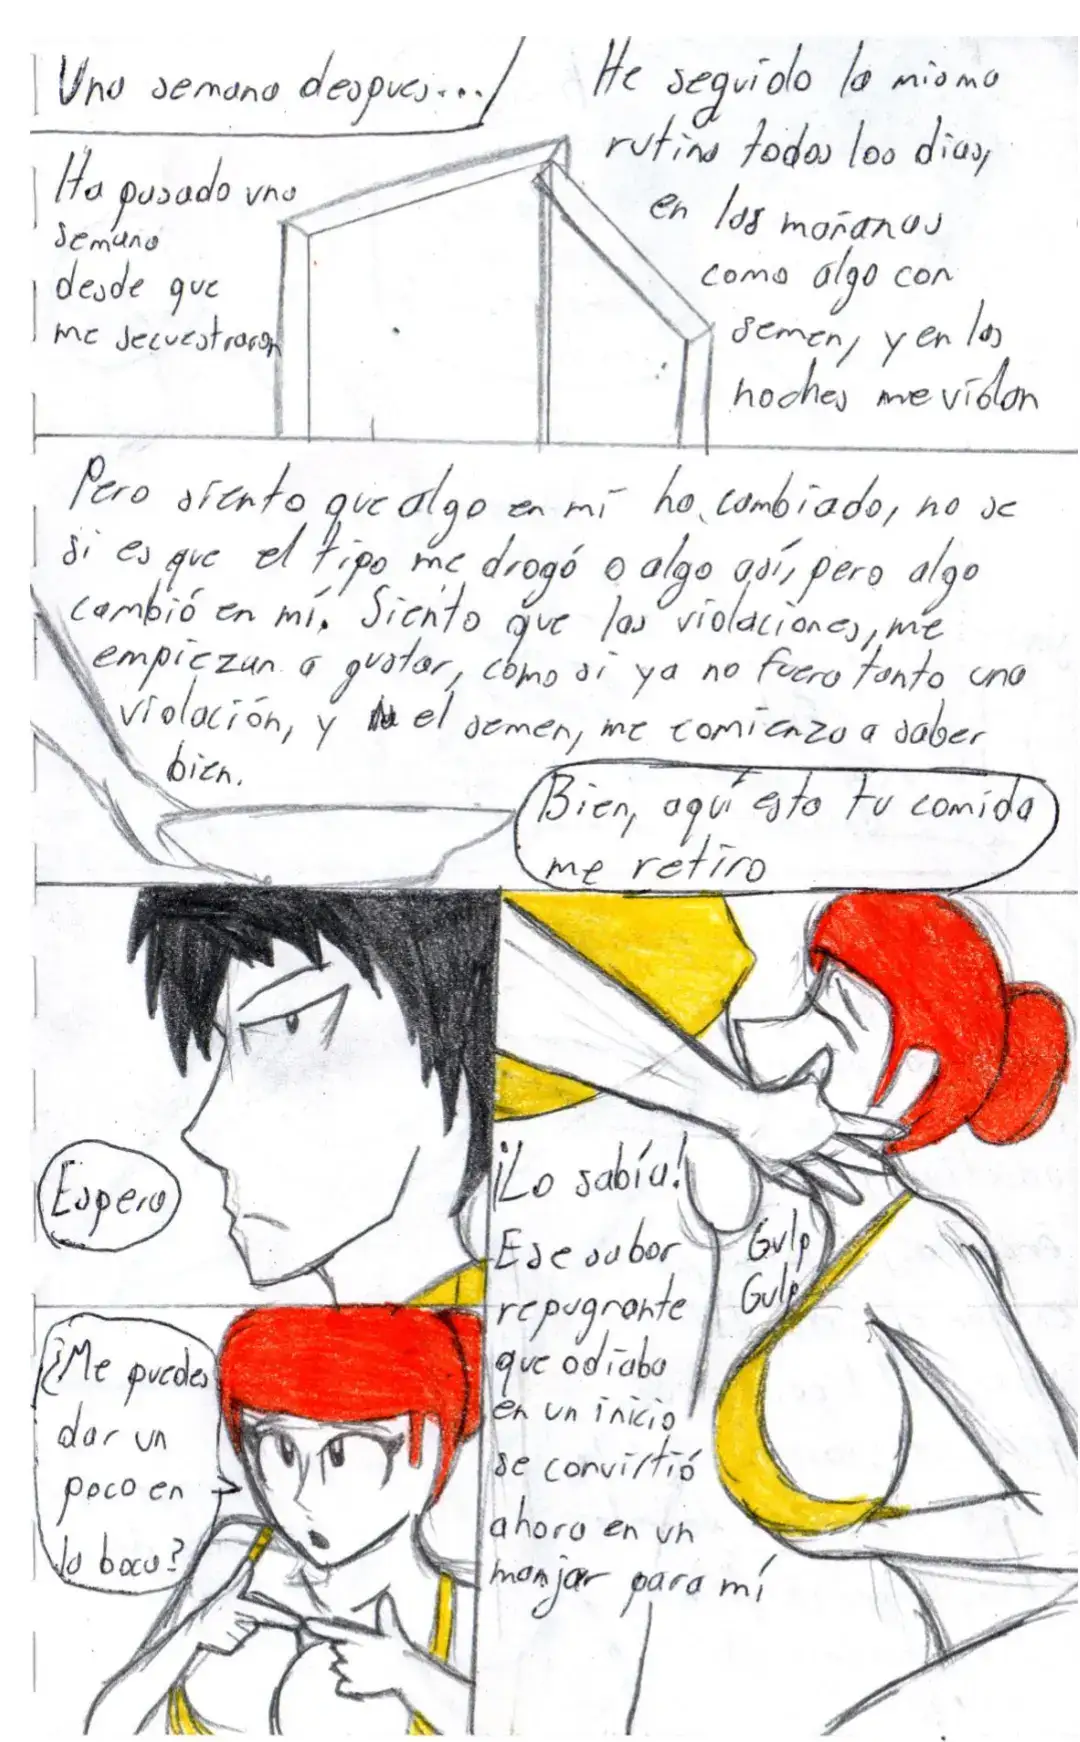 Una semana despues...
Ha pasado una
semana
desde que
me secuestraron
He seguido la misma
rutina todos los dias,
en las mañanas
como algo con
semen, y en las
noches me violan
Pero siento que algo en mí ha cambiado, no se
si es que el tipo me drogó o algo así, pero algo
cambió en mí. Siento que las violaciones, me
empiezan a gustar, como si ya no fuera tanto una
violación, y el semen, me comienza a saber
bien.
Bien, aquí esta tu comida
me retiro
Espera
¿Me puedes
dar un
poco en
la boca?
¡Lo sabía!
Ese sabor
repugnante
que odiaba
en un inicio
se convirtió
ahora en un
manjar para mí
Gulp
Gulp